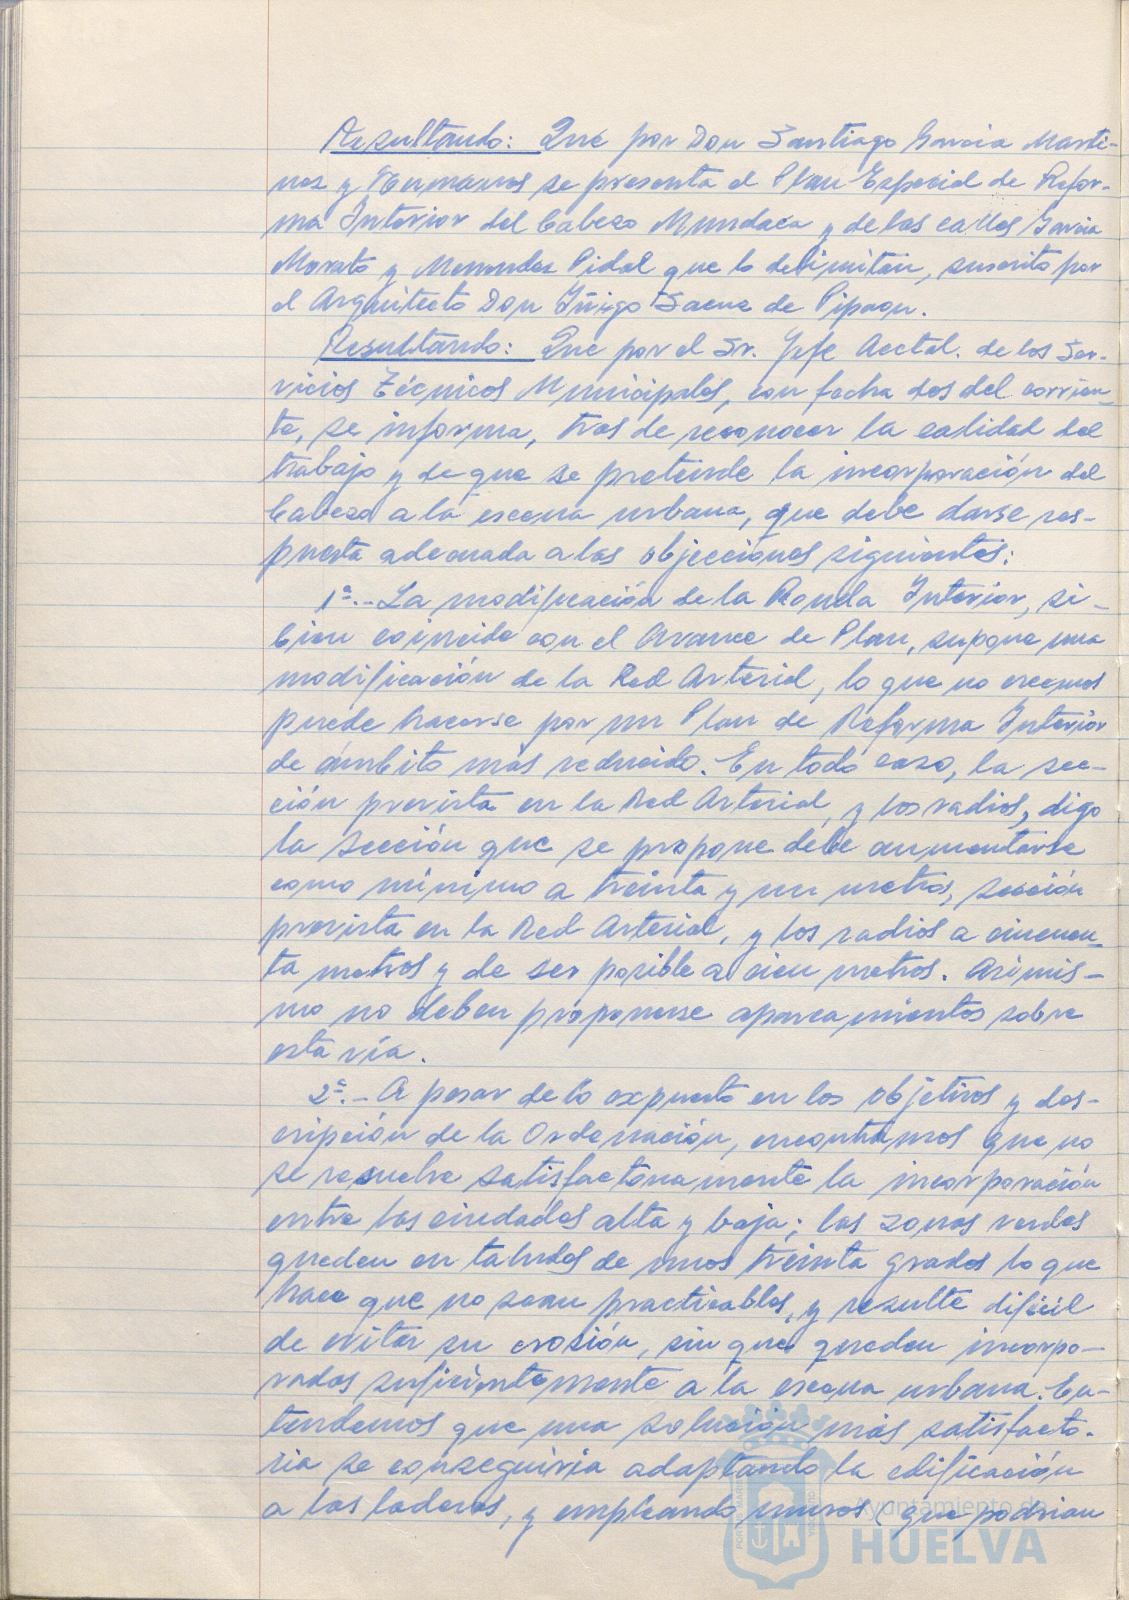 Resultando: Que por Don Santiago Garcia Marti-
nez y Hermanos se presenta el Plan Especial de Refor-
ma Interior del Cabezo Mundaca y de las calles Garcia
Morato y Menendez Pidal que lo delimitan, suscrito por
el Arquitecto Don Iñigo Saenz de Pipaon.
Resultando: Que por el Sr. Jefe Acctal. de los Ser-
vicios Técnicos Municipales, con fecha dos del corrien-
te, se informa, tras de reconocer la calidad del
trabajo y de que se pretende la incorporación del
Cabezo a la escena urbana, que debe darse res-
puesta adecuada a las objecciones siguientes:
1ª.- La modificación de la Ronda Interior, si-
bien coincide con el Avance de Plan, supone una
modificación de la Red Arterial, lo que no creemos
puede hacerse por un Plan de Reforma Interior
de ámbito más reducido. En todo caso, la sec-
ción prevista en la Red Arterial, y los radios, digo
la sección que se propone debe aumentarse
como mínimo a treinta y un metros, sección
prevista en la Red Arterial, y los radios a cincuen-
ta metros y de ser posible a cien metros. Asimis-
mo no deben proponerse aparcamientos sobre
esta vía.
2ª.- A pesar de lo expuesto en los objetivos y des-
cripción de la Ordenación, encontramos que no
se resuelve satisfactoriamente la incorporación
entre las ciudades alta y baja; las zonas verdes
quedan en taludes de unos treinta grados lo que
hace que no sean practicables, y resulte difícil
de evitar su erosión, sin que queden incorpo-
radas suficientemente a la escena urbana. En-
tendemos que una solución más satisfacto-
ria se conseguiria adaptando la edificación
a las laderas, y empleando muros (que podrian
Ayuntamiento de
HUELVA